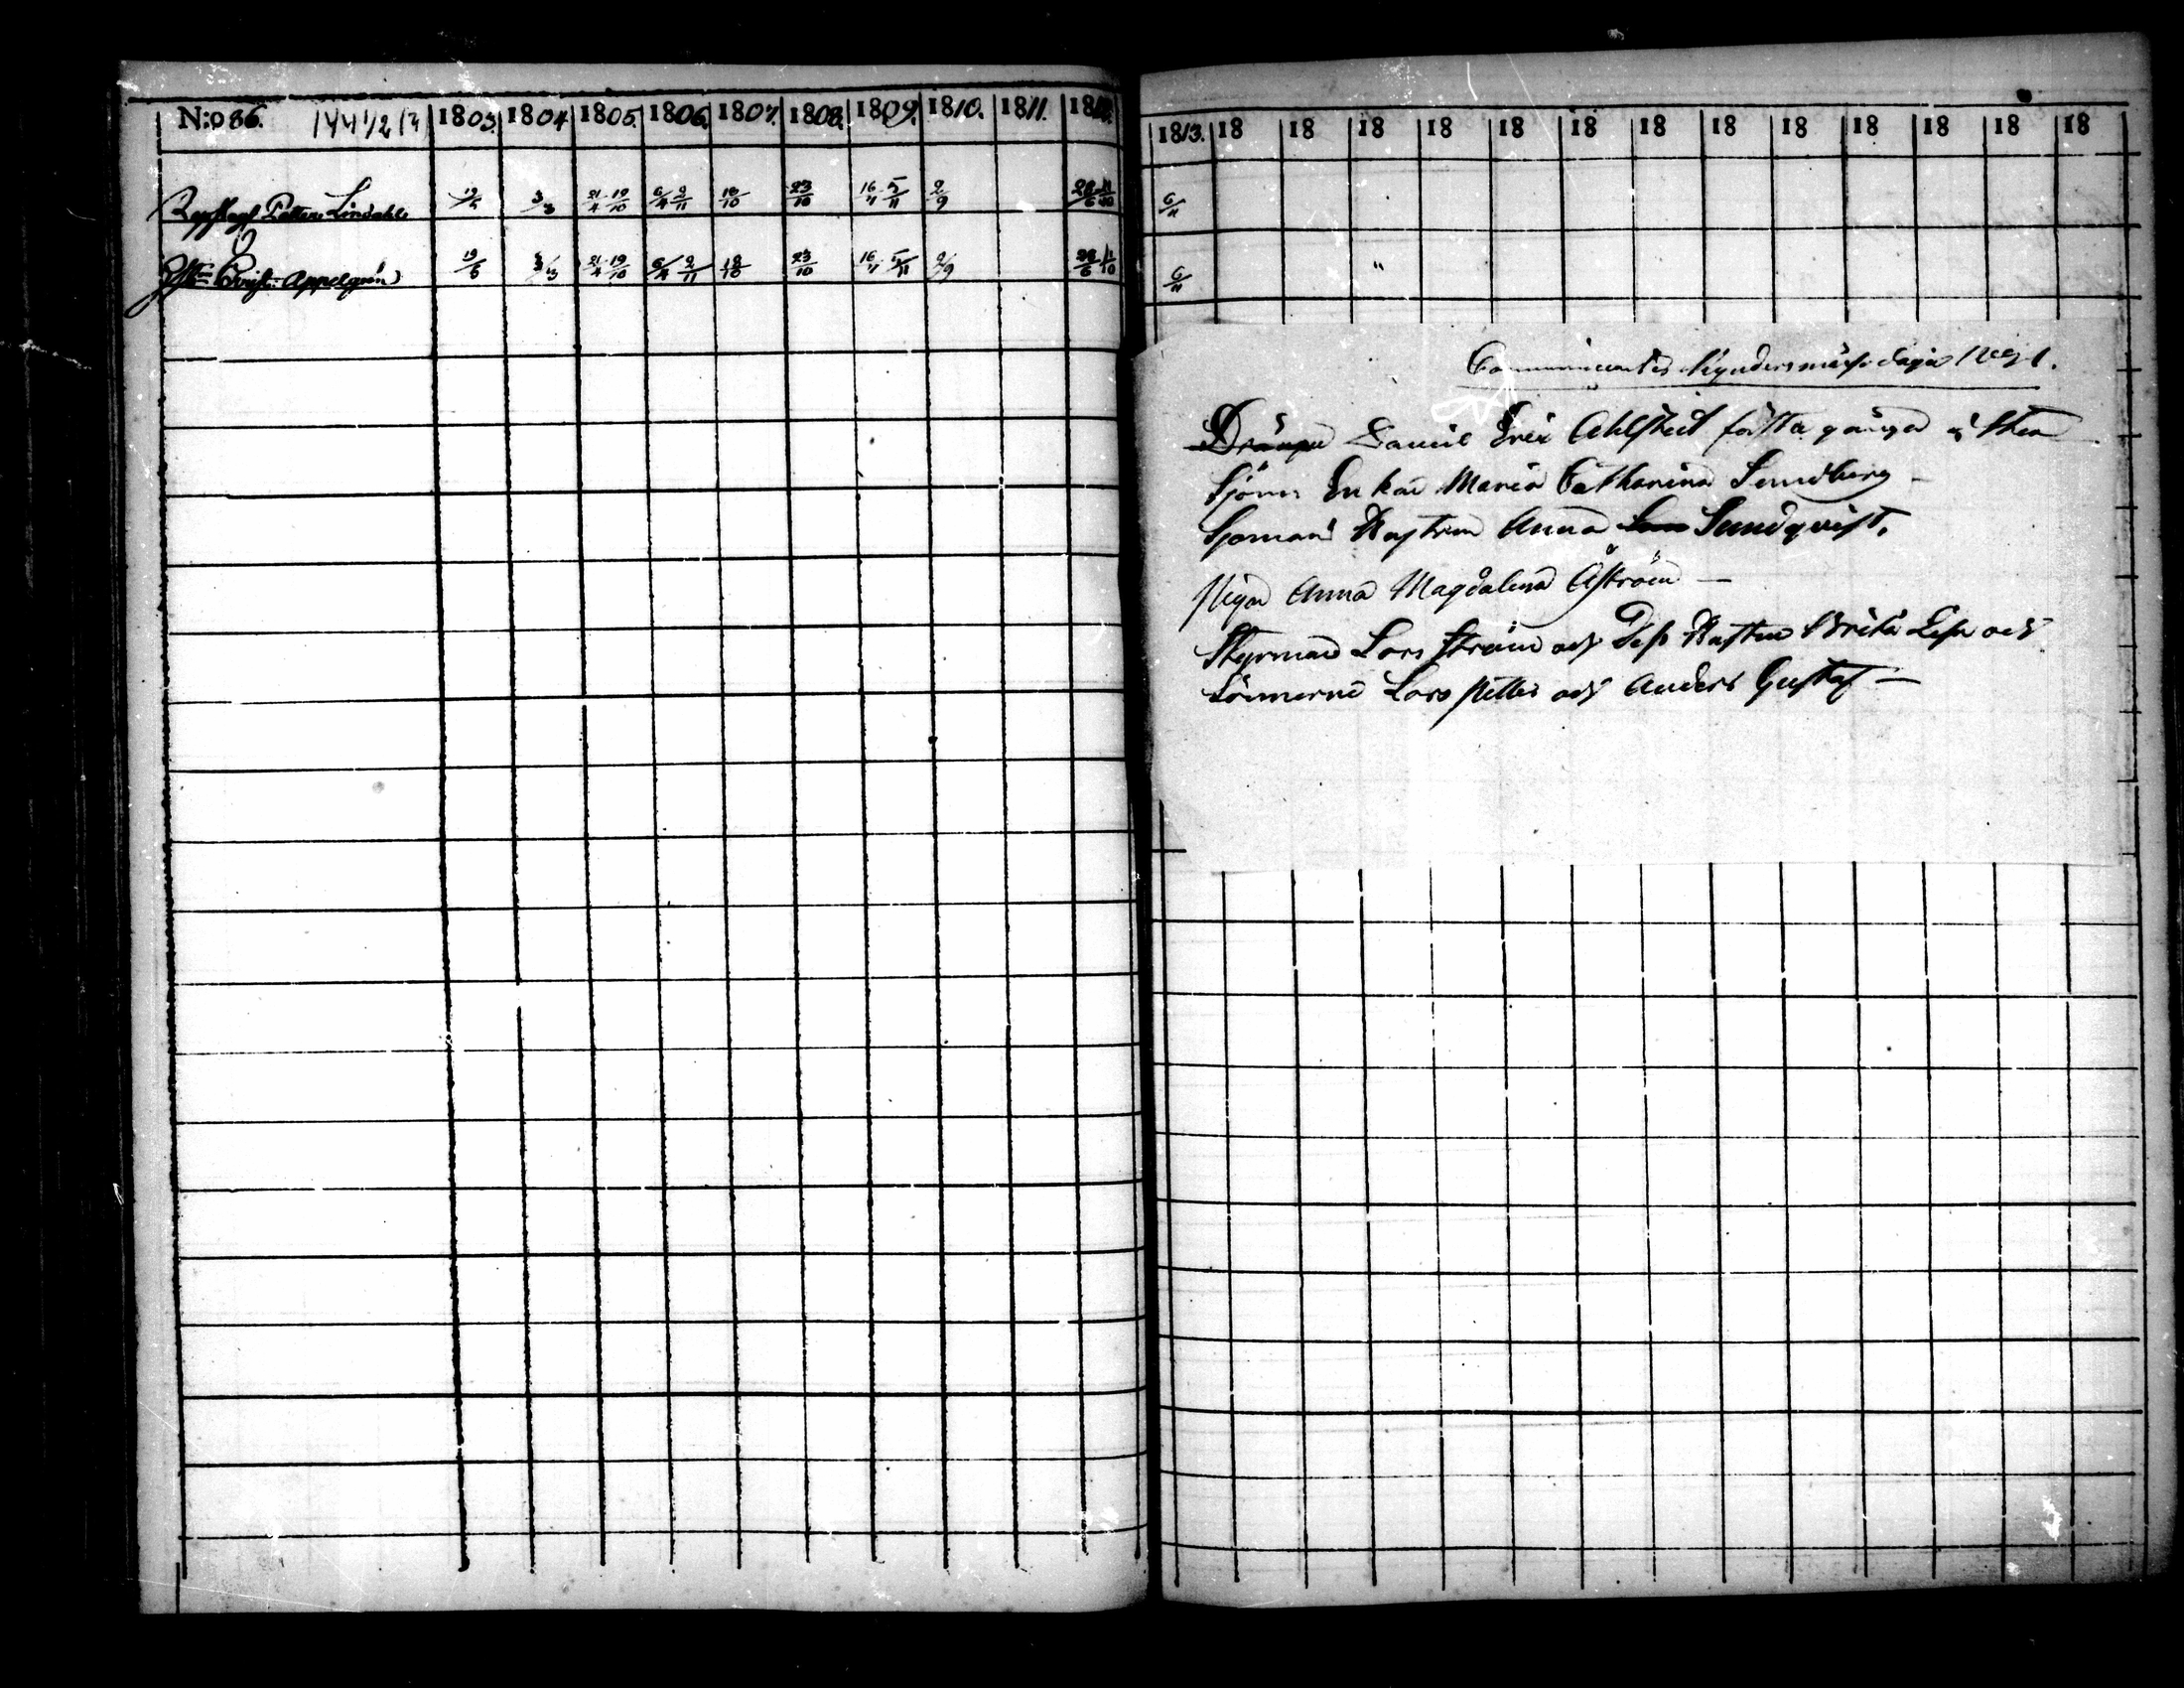 N:o 86. 1803. 1804 1805. 1806. 1807. 1808. 1809. 1810. 1811. 1812.
Petter Lindahl 3/3 21/4 19/10 6/4 2/11 18/10 23/10 16/4 5/11 2/9 28/6 11/10
Appelgren 19/5 21/4 19/10 6/4 2/11 18/10 23/10 16/4 5/11 2/9 28/6 11/10
1813. 18 18 18 18 18 18 18 18 18 18 18 18 18
6/11
6/11
Communicantes Kyndersmässo daga
Drängen Daniel Eric Ahlsted första gången
Enkan Maria Catharina Sundberg
Sjöman Hustrun Anna Sundqvist.
Pigan Anna Magdalena Åström
Styrman Lars Ström och Dess Hustru Brita Lisa och
Sönnerne Lars Petter och Anders Gustaf